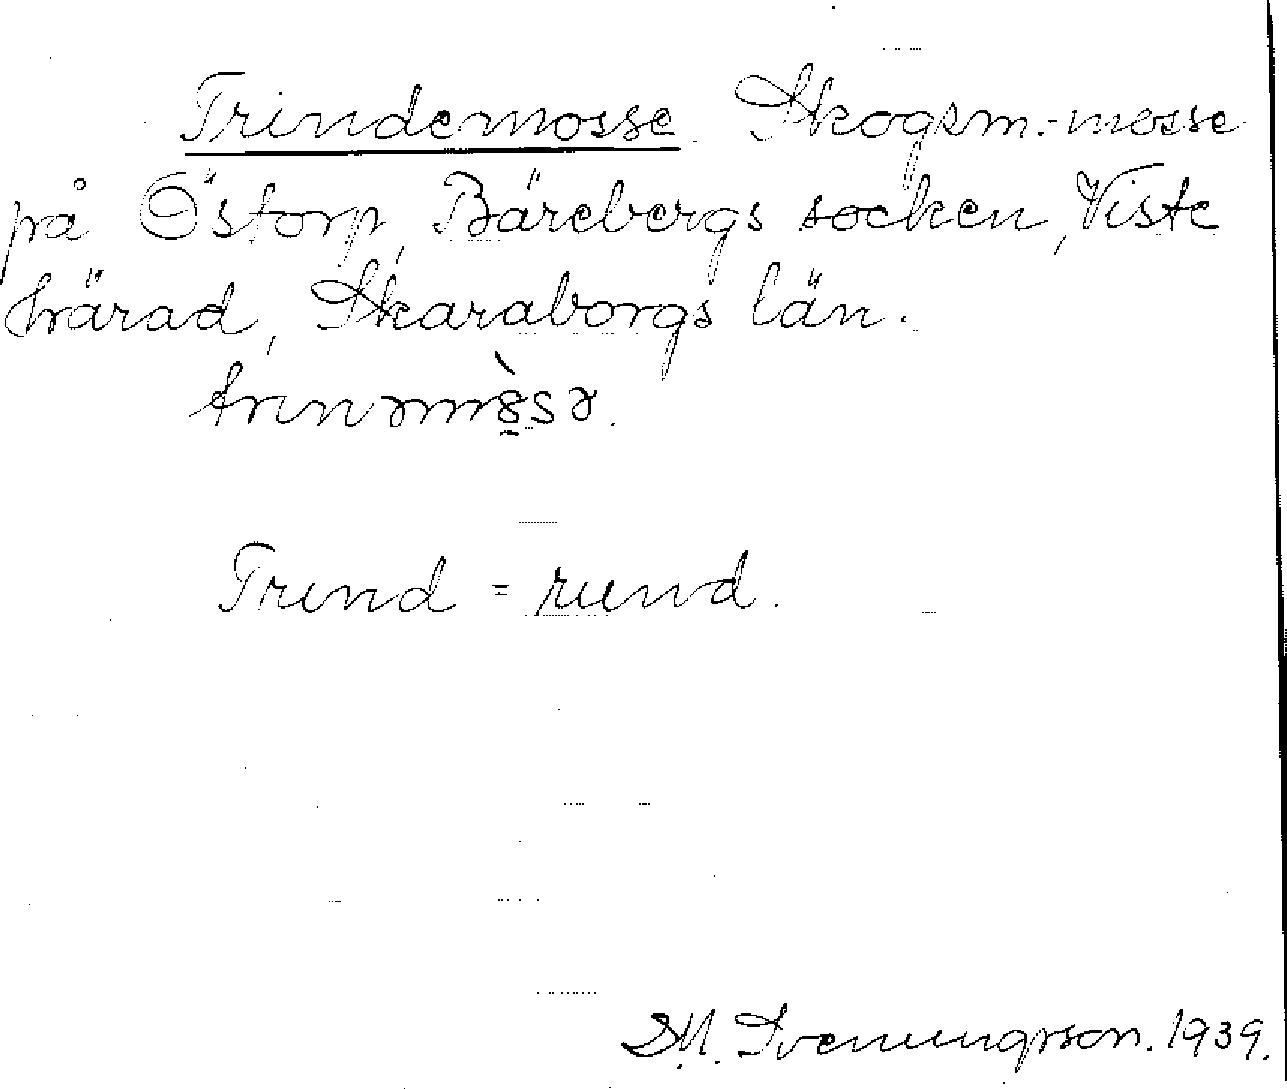 Trindemosse Skogsm.-mosse
på Östorp, Bärebergs socken, Viste
härad, Skaraborgs län.
trinəm

Trind = rund.
D.M. Svenungsson. 1939.